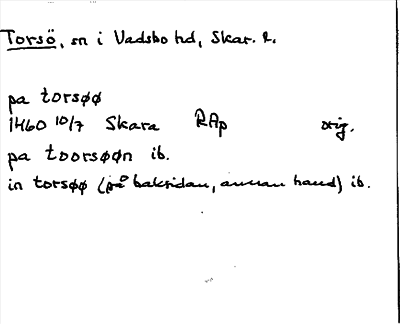 Torsö, sn i Vadsbo hd, Skar. l.
pa torsøø
1460 10/7 Skara RAp orig.
pa toorsøøn ib.
in torsøø (på baksidan, annan hand) ib.